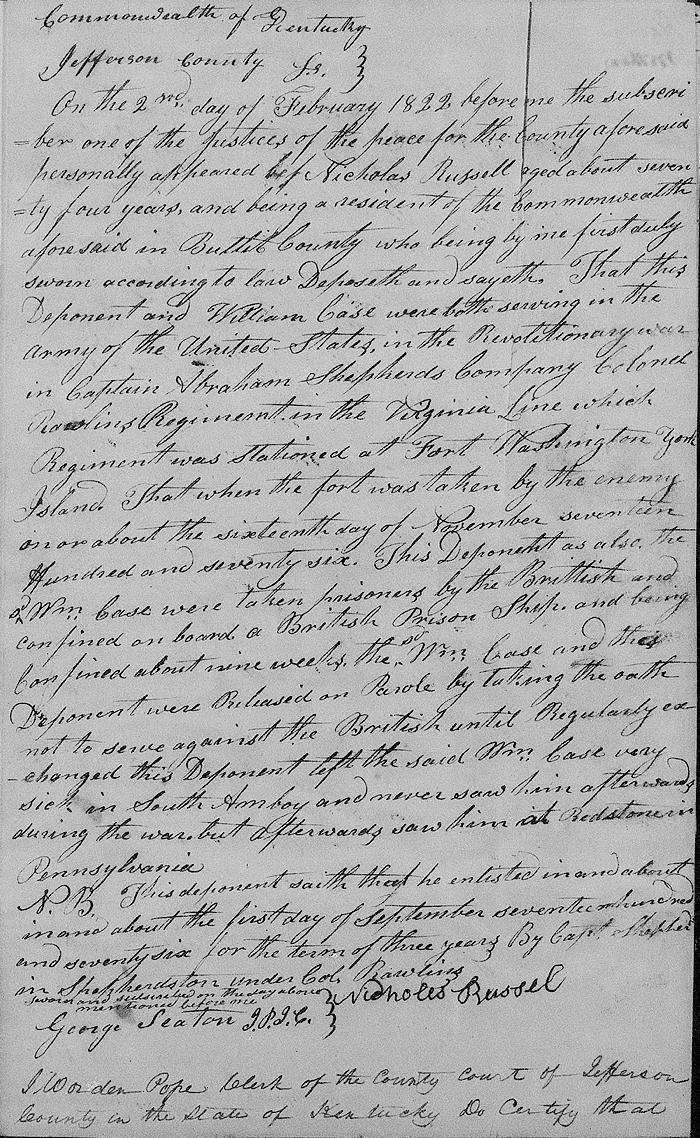 Commonwealth of Kentucky
Jefferson County Ss. }
On the 2nd day of February 1822 before me the subscri
=ber one of the Justices of the peace for the County aforesaid
personally appeared Nicholas Russell aged about seven
=ty four years, and being a resident of the Commonwealth
aforesaid in Bullit County who being by me first duly
sworn according to law Deposeth and sayeth. That this
Deponent and William Case were both serving in the
army of the United States, in the Revolutionary war
in Captain Abraham Shepherds Company Colonel
Rawlins Regiment in the Virginia Line which
Regiment was stationed at Fort Washington York
Island. That when the fort was taken by the enemy
on or about the sixteenth day of November seventeen
Hundred and seventy six. This Deponent as also, the
sd Wm. Case were taken prisoners by the Brittish and
confined on board a British Prison Ship. and being
Confined about nine weeks, the sd Wm. Case and this
Deponent were Released on Parole by taking the oath
not to serve against the British until Regularly ex
-changed this Deponent left the said Wm. Case very
sick in South Amboy and never saw him afterwards
during the war. but afterwards saw him at Redstone in
Pennsylvania
N. B. This deponent saith that he enlisted in and about
in and about the first day of September seventeen hundred
and seventy six for the term of three years By Capt. Shepherd
in Shepherdston under Col. Rawlins
sworn and subscribed on the day above
mentioned before me
George Seaton J.P.J.C. } Nicholes Russel
I Worden Pope Clerk of the County Court of Jefferson
County in the State of Kentucky Do Certify that